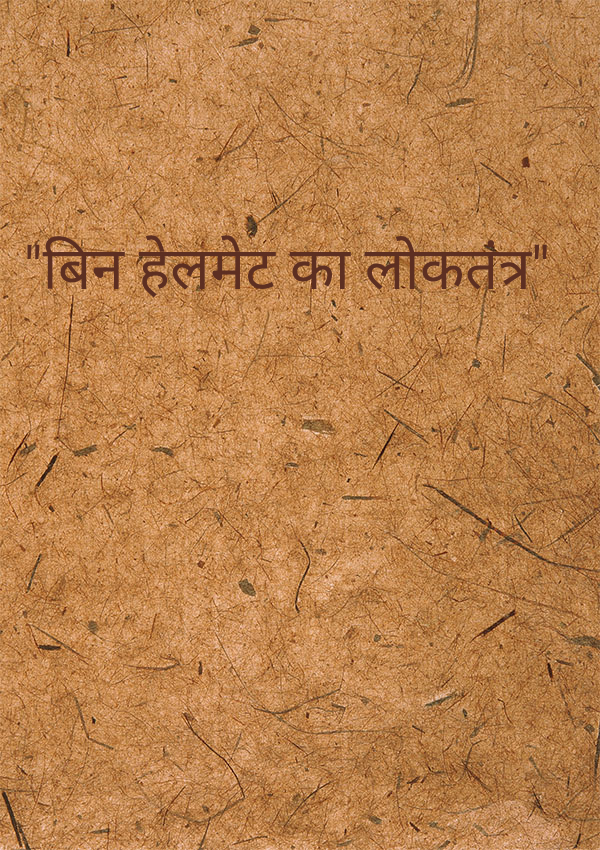 "बिन हेलमेट का लोकतंत्र"